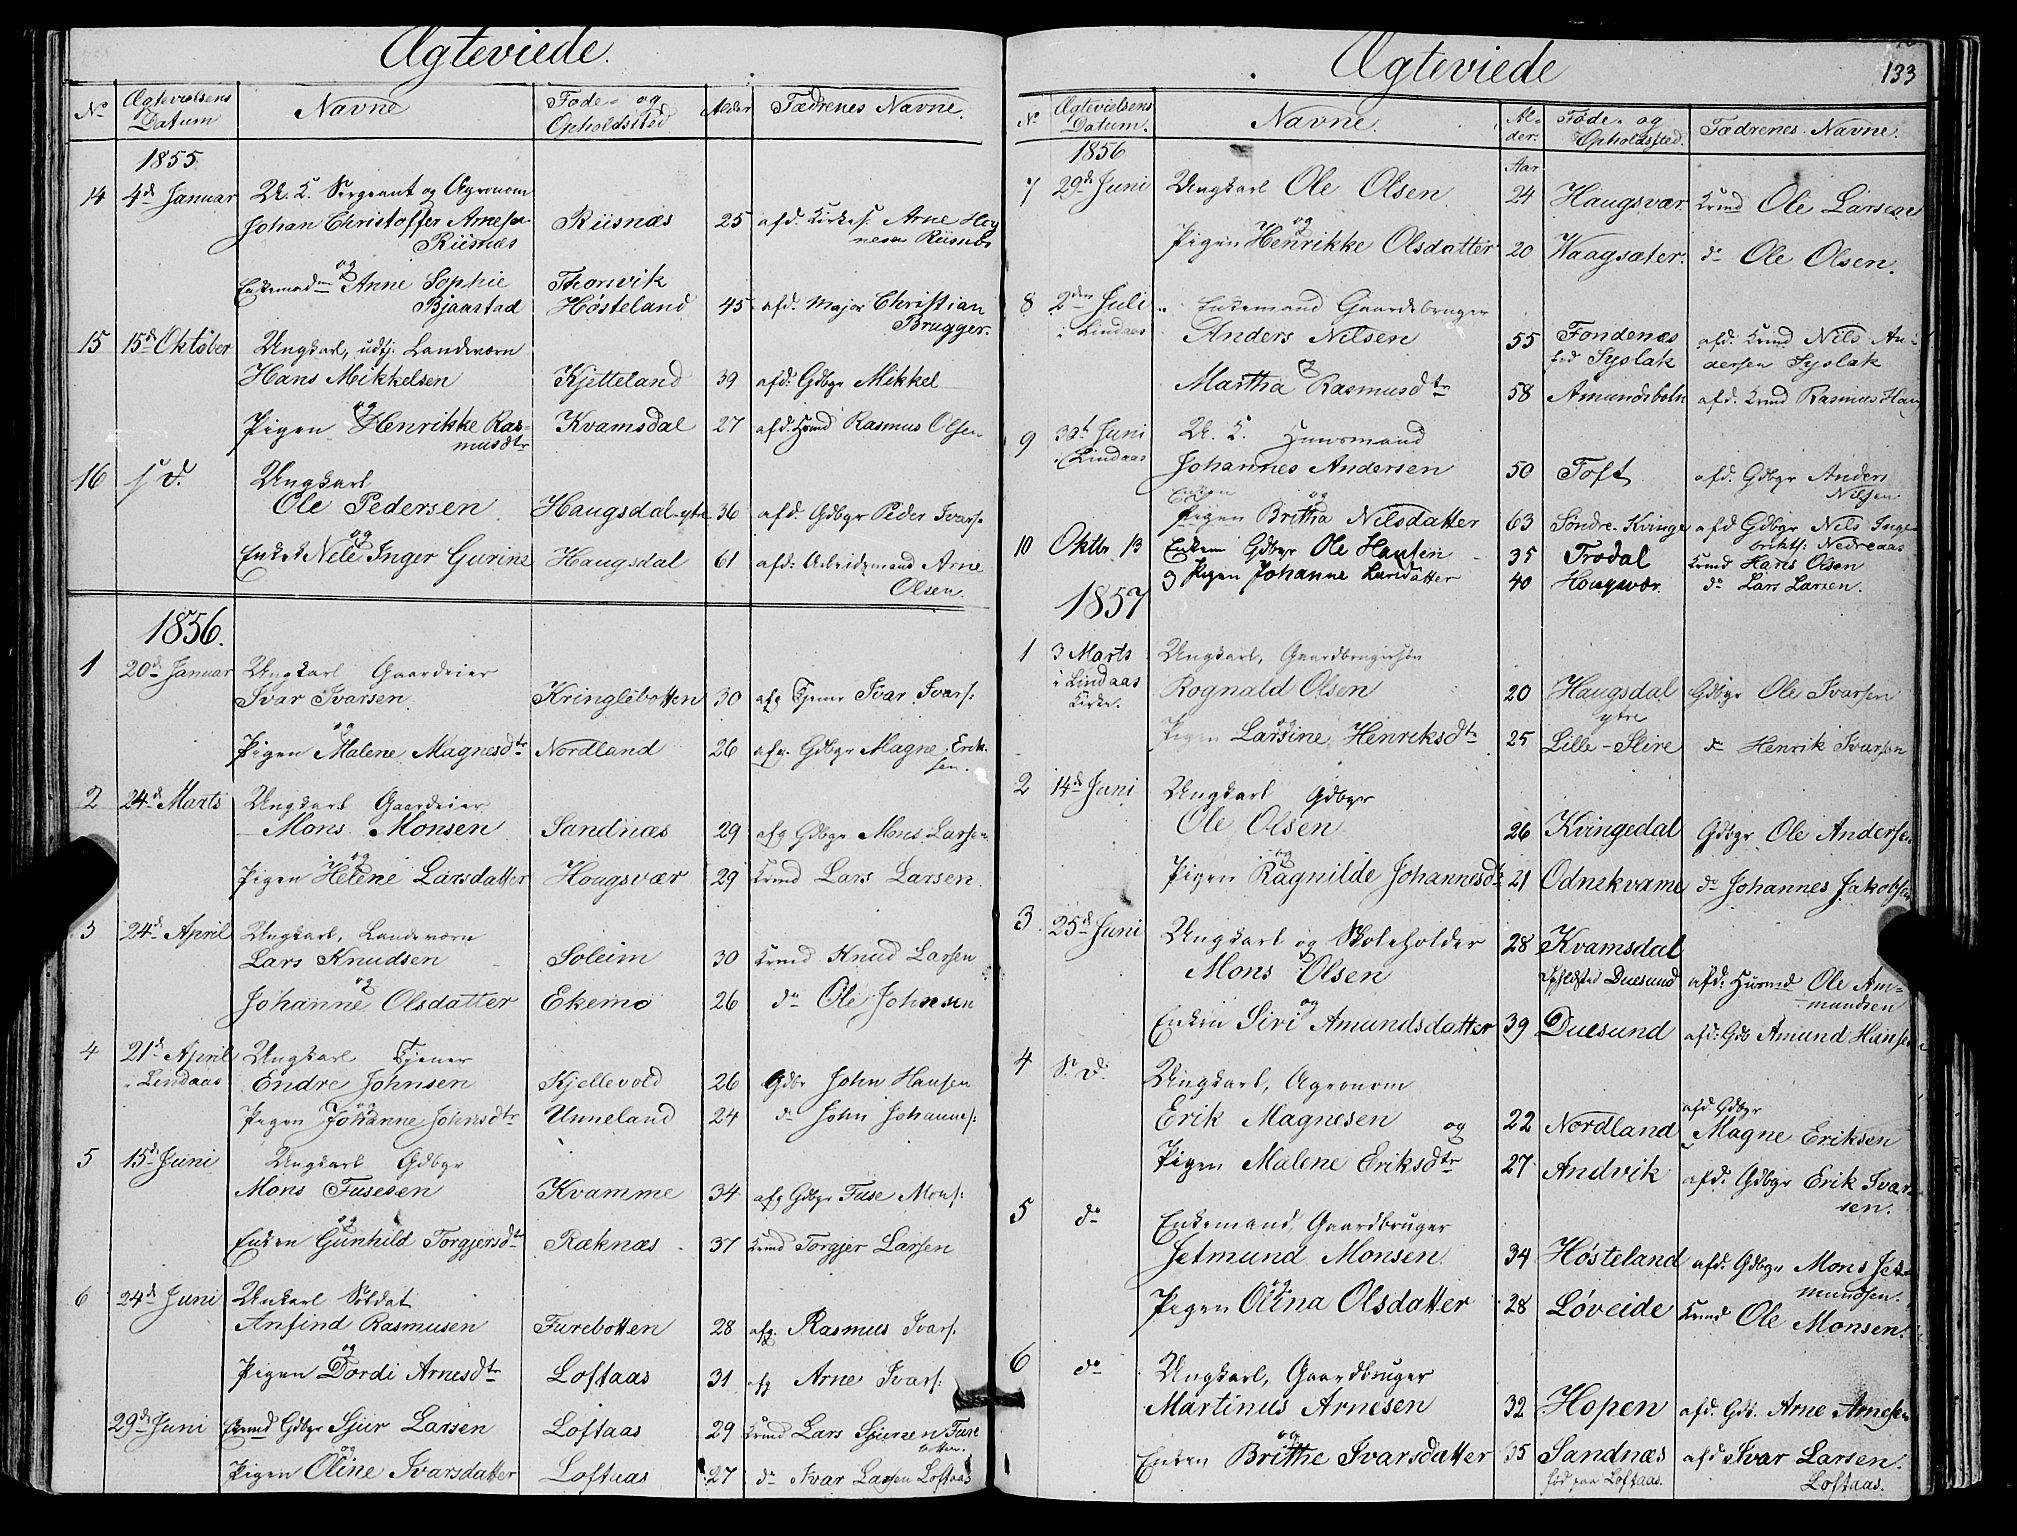 Ægteviede.
No Ægtevielsens Datum Navne Føde- og Opholdssted Alder Fædrenes Navne.
1855
14 4de Januar U. K. Sergeant og Agronom
Johan Christoffer Arnesen Riisnæs 25 afd. Kirkes. Arne
Riisnæs Riisnæs
og
Anne Sophie Thorsvik
Bjaarstad Høsteland 45 afd. Major Christian
Brugger.
15 15de Oktober Ungkarl, udtj. Landeværn
Hans Mikkelsen Kjetteland 39 afd. Gdbgr Mikkel
og
Pigen Henrikke Ras- Kvamsdal 27 afd. Hmd Rasmus Olsen
musdtr
16 s. d. Ungkarl
Ole Pedersen Haugsdal-ytre 36 afd. Gdbgr Peder Ivars:
og
Enken Nele Inger Gurine Haugsdal 61 afd. Arbeidsmand Arne
Olsen.
1856.
1 20de Januar Ungkarl Gaardeier
Ivar Ivarsen Kringlebotten 30 afg Tjener Ivar Ivars:
og
Pigen Malene Magnesdtr Nordland 26 afg. Gdbgr Magne Erik-
sen.
2 24de Marts Ungkarl Gaardeier
Mons Monsen Sandnæs 29 afg Gdbgr Mons Larsen
og
Pigen Helene Larsdatter Hougsvær 29 Krmd Lars Larsen.
3 24de April Ungkarl, Landeværn
Lars Knudsen Soleim 30 Krmd Knud Larsen
og
Johanne Olsdatter Ekemo 26 do Ole Johnsen
4 21de April Ungkarl Tjener
i Lindaas Endre Johnsen Kjellevold 26 Gdbr John Hansen
og
Pigen Johanne Johnsdtr Unneland 24 do John Johannes:
5 15de Juni Ungkarl Gdbgr
Mons Fusesen Kvamme 34 afg Gdbgr Fuse Mons:
og
Enken Gunhild Torgjersdtr Ræknæs 37 Krmd Torgjer Larsen
6 24de Juni Unkarl Soldat
Anfind Rasmusen Furebotten 28 afg. Rasmus Ivars:
og
Pigen Dordi Arnesdtr Loftaas 31 afg Arne Ivars:
29de Juni Gdbgr Sjur Larsen Loftaas 29 Krmd Lars Fure
botten.
og
Pigen Oline Ivarsdatter Loftaas 27 do Ivar Larsen Loftaas
Ægteviede
133
No Ægtevielsens Datum. Navne. Al- der. Føde- og Opholdssted. Fædrenes Navne.
1856 Aar
7 29de Juni Ungkarl Ole Olsen 24 Haugsvær Krmd Ole Larsen
og
Pigen Henrikke Olsdatter 20 Waagsæter. do Ole Olsen.
8 2den Juli Enkemand Gaardbruger
i Lindaas Anders Nilsen 55 Fondenæs afd. Krmd Nils An-
Syslak dersen Syslak
og
Martha Rasmusdtr 58 Amundsbotn afd. Krmd Rasmus
9 30te Juni U. K. Huusmand
i Lindaas Johannes Andersen 50 Toft afd. Gdbgr Anders
Nilsen
Enken og
Pigen Britha Nilsdatter 63 Søndre-Kvinge afd Gdbgr Nils Inge-
Nedreaas
10 Oktbr 13 Enkem Gdbgr Ole Hansen 35 Trodal Krmd Hans Olsen
og Pigen Johanne Larsdatter 40 Hougsvær. do Lars Larsen.
1857
1 3 Marts Ungkarl, Gaardbrugersøn
i Lindaas Rognald Olsen 20 Haugsdal Gdbgr Ole Ivarsen
Kirke. ytre
og
Pigen Larsine Henriksdtr 25 Lille-Steire do Henrik Ivarsen
2 14de Juni Ungkarl Gdbgr
Ole Olsen 26 Kvingedal Gdbgr Ole Andersen
og
Pigen Ragnilde Johannesdtr 21 Odnekvame do Johannes Jakobsen
3 25de Juni Ungkarl og Skoleholder 28 Kvamsdal
Mons Olsen Duesund afd. Huusmd Ole Am-
mundsen
og
Enken Siri Amundsdatter 39 Duesund afd: Gdb Amund Hansen
4 S. D. Ungkarl, Agronom
afd. Gdbgr
Erik Magnesen og 22 Nordland Magne Eriksen
Pigen Malene Eriksdtr 27 Andvik afd. Gdbgr Erik Ivar-
sen.
5 do Enkemand, Gaardbruger
Jetmund Monsen 34 Høsteland afd. Gdbgr Mons Jet-
mundsen.
og
Pigen Olina Olsdatter 28 Løveide Krmd Ole Monsen.
6 do Ungkarl, Gaardbruger
Martinus Arnesen 32 Hopen afd. Gdb. Arne Arnesen
og
Enken Brithe Ivarsdatter 35 Sandnæs afd Ivar Larsen.
fød paa Loftaas. Loftaas.